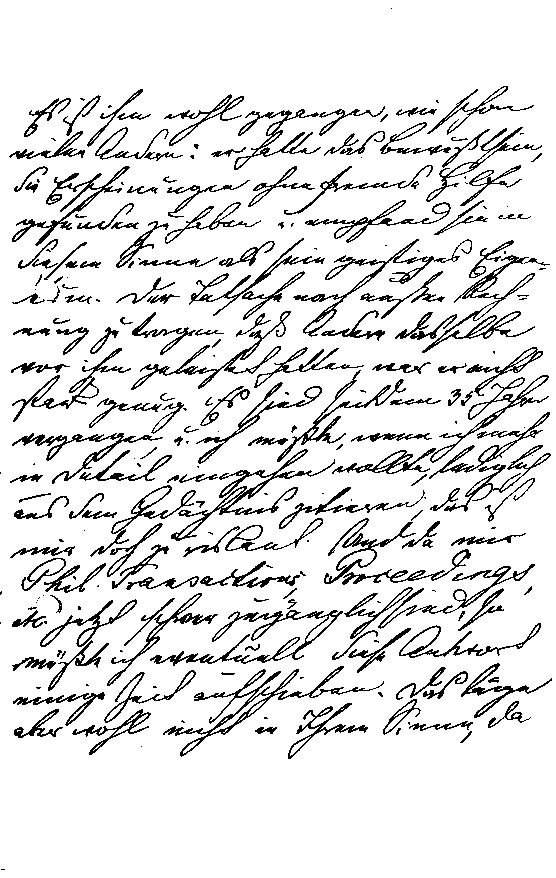 Es ist ihm wohl gegangen, wie schon
vielen Andern: er hatte das Bewußtsein,
die Erscheinungen ohne fremde Hilfe
gefunden zu haben u. empfand sie in
diesem Sinne als sein geistiges Eigen-
tum. Der Tatsache nach außen Rech-
nung zu tragen, daß Andere dasselbe
vor ihm geleistet hatten, war er nicht
stark genug. Es sind seitdem 35 Jahre
vergangen u. ich müßte, wenn ich mehr
in Detail eingehen wollte, lediglich
aus dem Gedächtnis zitieren, das ist
mir doch zu riskant. Und da mir
Phil. Transactions, Proceedings,
etc. jetzt schwer zugänglich sind, so
müßte ich eventuell diese Antwort
einige Zeit aufschieben. Das läge
aber wohl nicht in Ihrem Sinne, da